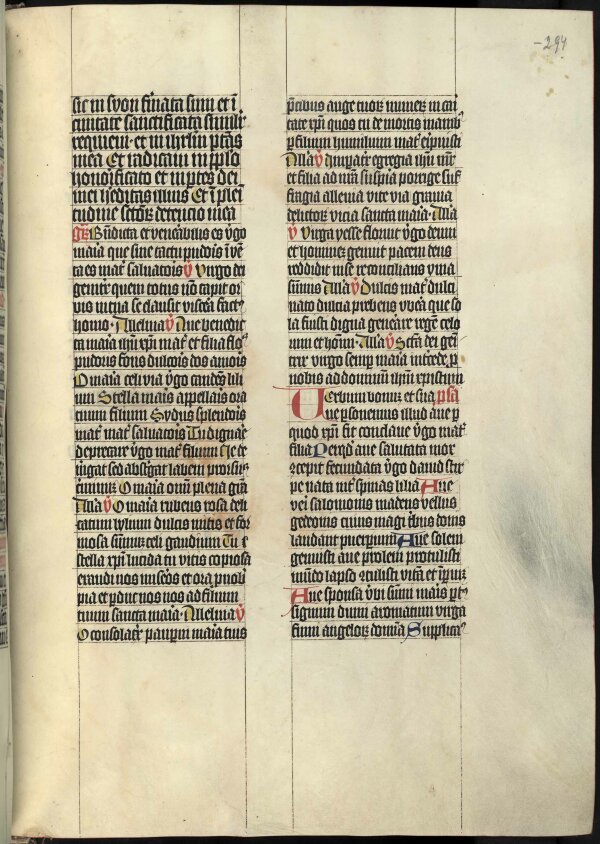 -294
sic in syon firmata sum et ī
ciuitate sanctificata simili
requieui et in ihrlm ptās
mea Et radicaui in pplo
honorificato et in ptes dei
mei hereditas illius Et ī plei
tudine sctoꝝ detencio mea
Bndicta et venerabilis es vgo
maria que sine tactu pudoris īuē
ta es mat saluatoris v Virgo dei
genitrix quem totus nō capit or
bis in tua se clausit viscera fact
homo Alleluia v Aue benedic
ta maria ihu xpi mat et filia flos
pudoris fons dulcoris dos amoris
O maria celi via vgo candens lili
um Stella maris appellaris ora
tuum filium Sydus splendoris
mat mat saluatoris Tu dignare
deprecare vgo mat filium Ne te
tigat sed abstergat labem
criminum O maria omni plena gra
Alla v O maria rubens rosa deli
catum lylium dulcis mitis et for
mosa summi celi gaudium Tu
stella xpi lucida tu vitis copiosa
erandi nos miseros et ora p nobis
pia et pduc nos nos ad filium
tuum sancta maria Alleluia v
O consolatrix paupum maria tuis
pcibus auge tuoꝝ numerum in cari
tate xpi quos tu de mortis manibus
p filium humilium mat eripuisti
Alla v Dm pater egregia ihu nri
et filia ad nm suspiria porrige suf
fragia allenia vite via grauia
delictoꝝ vicia sancta maria Alla
v Virga yesse floruit vgo deum
et hominem genuit pacem deus
reddidit in se reconcilians yma
summis Alla v Dulcis mat dulci
nato dulcia prebens vbera que so
la fuisti digna generare regem celo
rum et dominum Alla v Scta dei gen
trix virgo semp maria intercede p
nobis ad dominum ihum xpistum
Verbum bonum et sua psa
ue psonemus illud aue p
quod xpi fit conclaue vgo mat
filia Per qd aue salutata mox
cepit fecundata vgo dauid stir
pe nata int spinas lilia Aue
veri salomonis madens vellus
gedeonis cuius magi tribus donis
laudant puerpium Aue solem
genuisti aue prolem protulisti
mundo lapso cōtulisti vitā et īpium
Aue sponsa vbi summi maris port
signum dumi aromatum virga
fumi angeloꝝ domina Supplicam